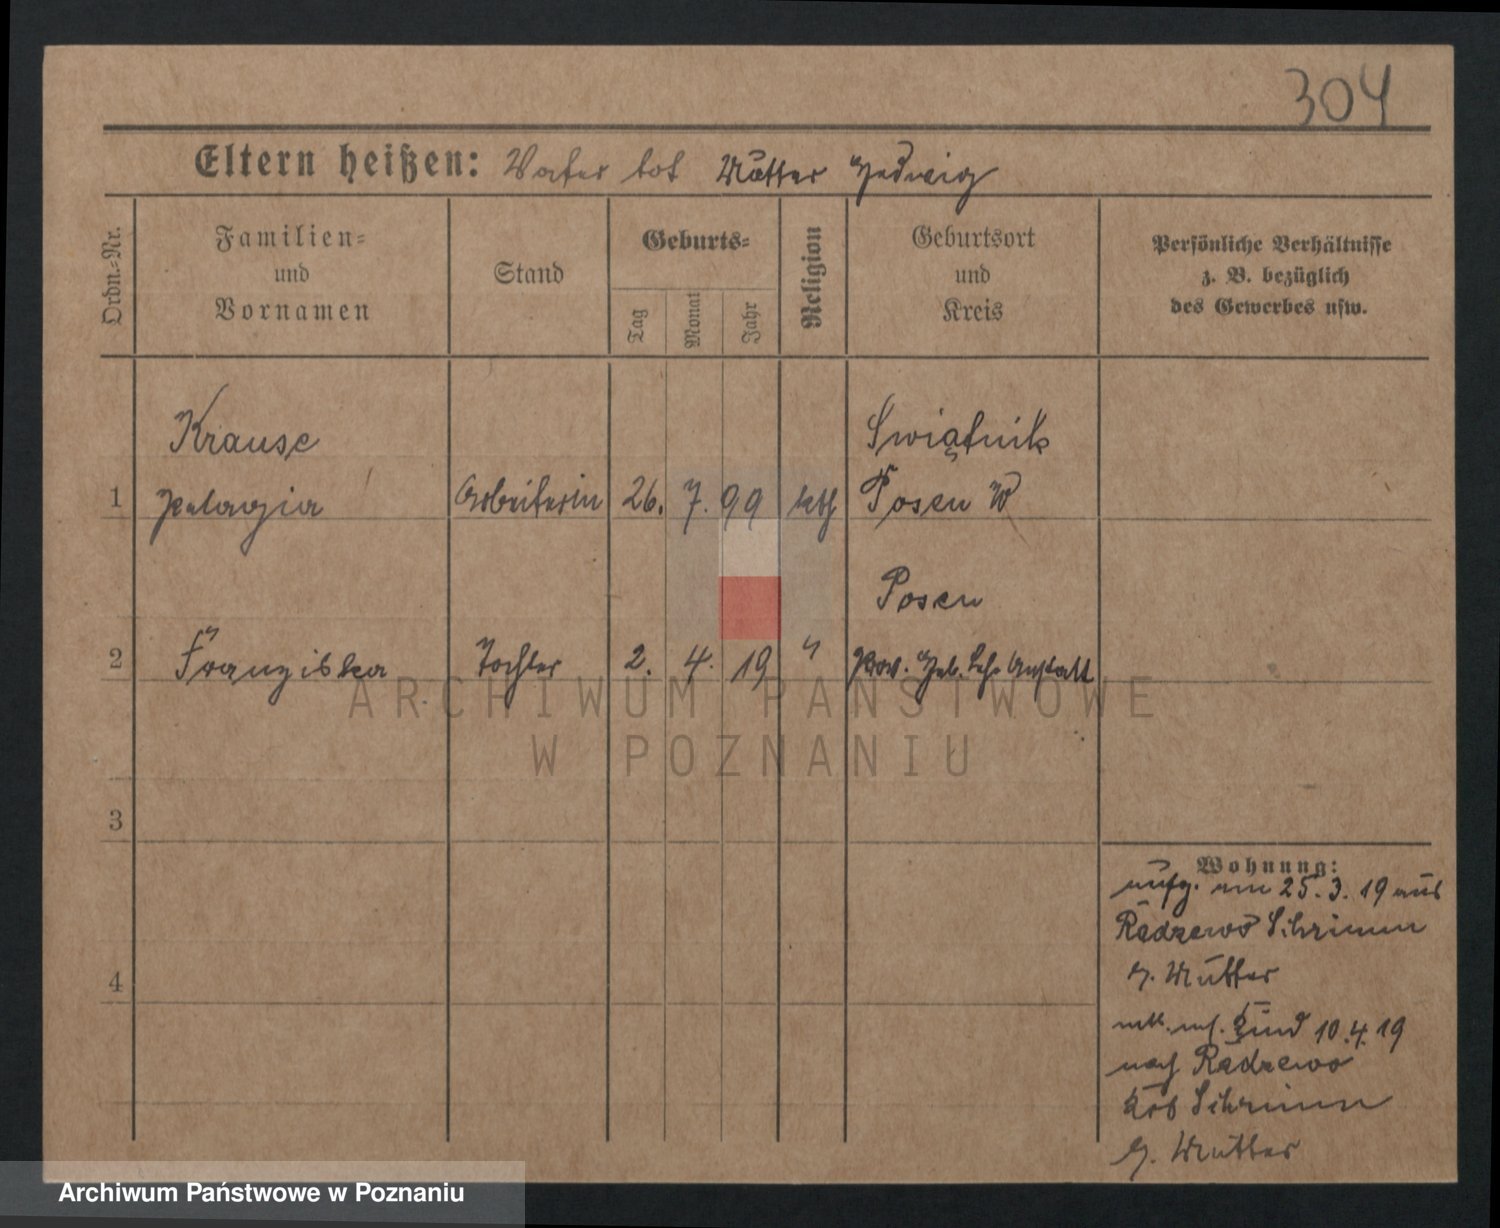 304
Eltern heißen: Vater tot Mutter Hedwig
Ordn.-Nr.
Familien-
und
Vornamen
Stand
Geburts-
Tag
Monat
Jahr
Religion
Geburtsort
und
Kreis
Persönliche Verhältnisse
z. B. bezüglich
des Gewerbes usw.
Krause
Swiątnik
1 Pelagia Arbeiterin 26. 7. 99 kth Posen W
Posen
2 Franziska Tochter 2. 4. 19 " Prov. Heb. Lehr Anstalt
3
4
Wohnung:
aufg. am 25.3.19 aus
Radzewo Schrimm
b. Mutter
mit Kind 10.4.19
nach Radzewo
Krs Schrimm
b. Mutter
ARCHIWUM PAŃSTWOWE
W POZNANIU
Archiwum Państwowe w Poznaniu